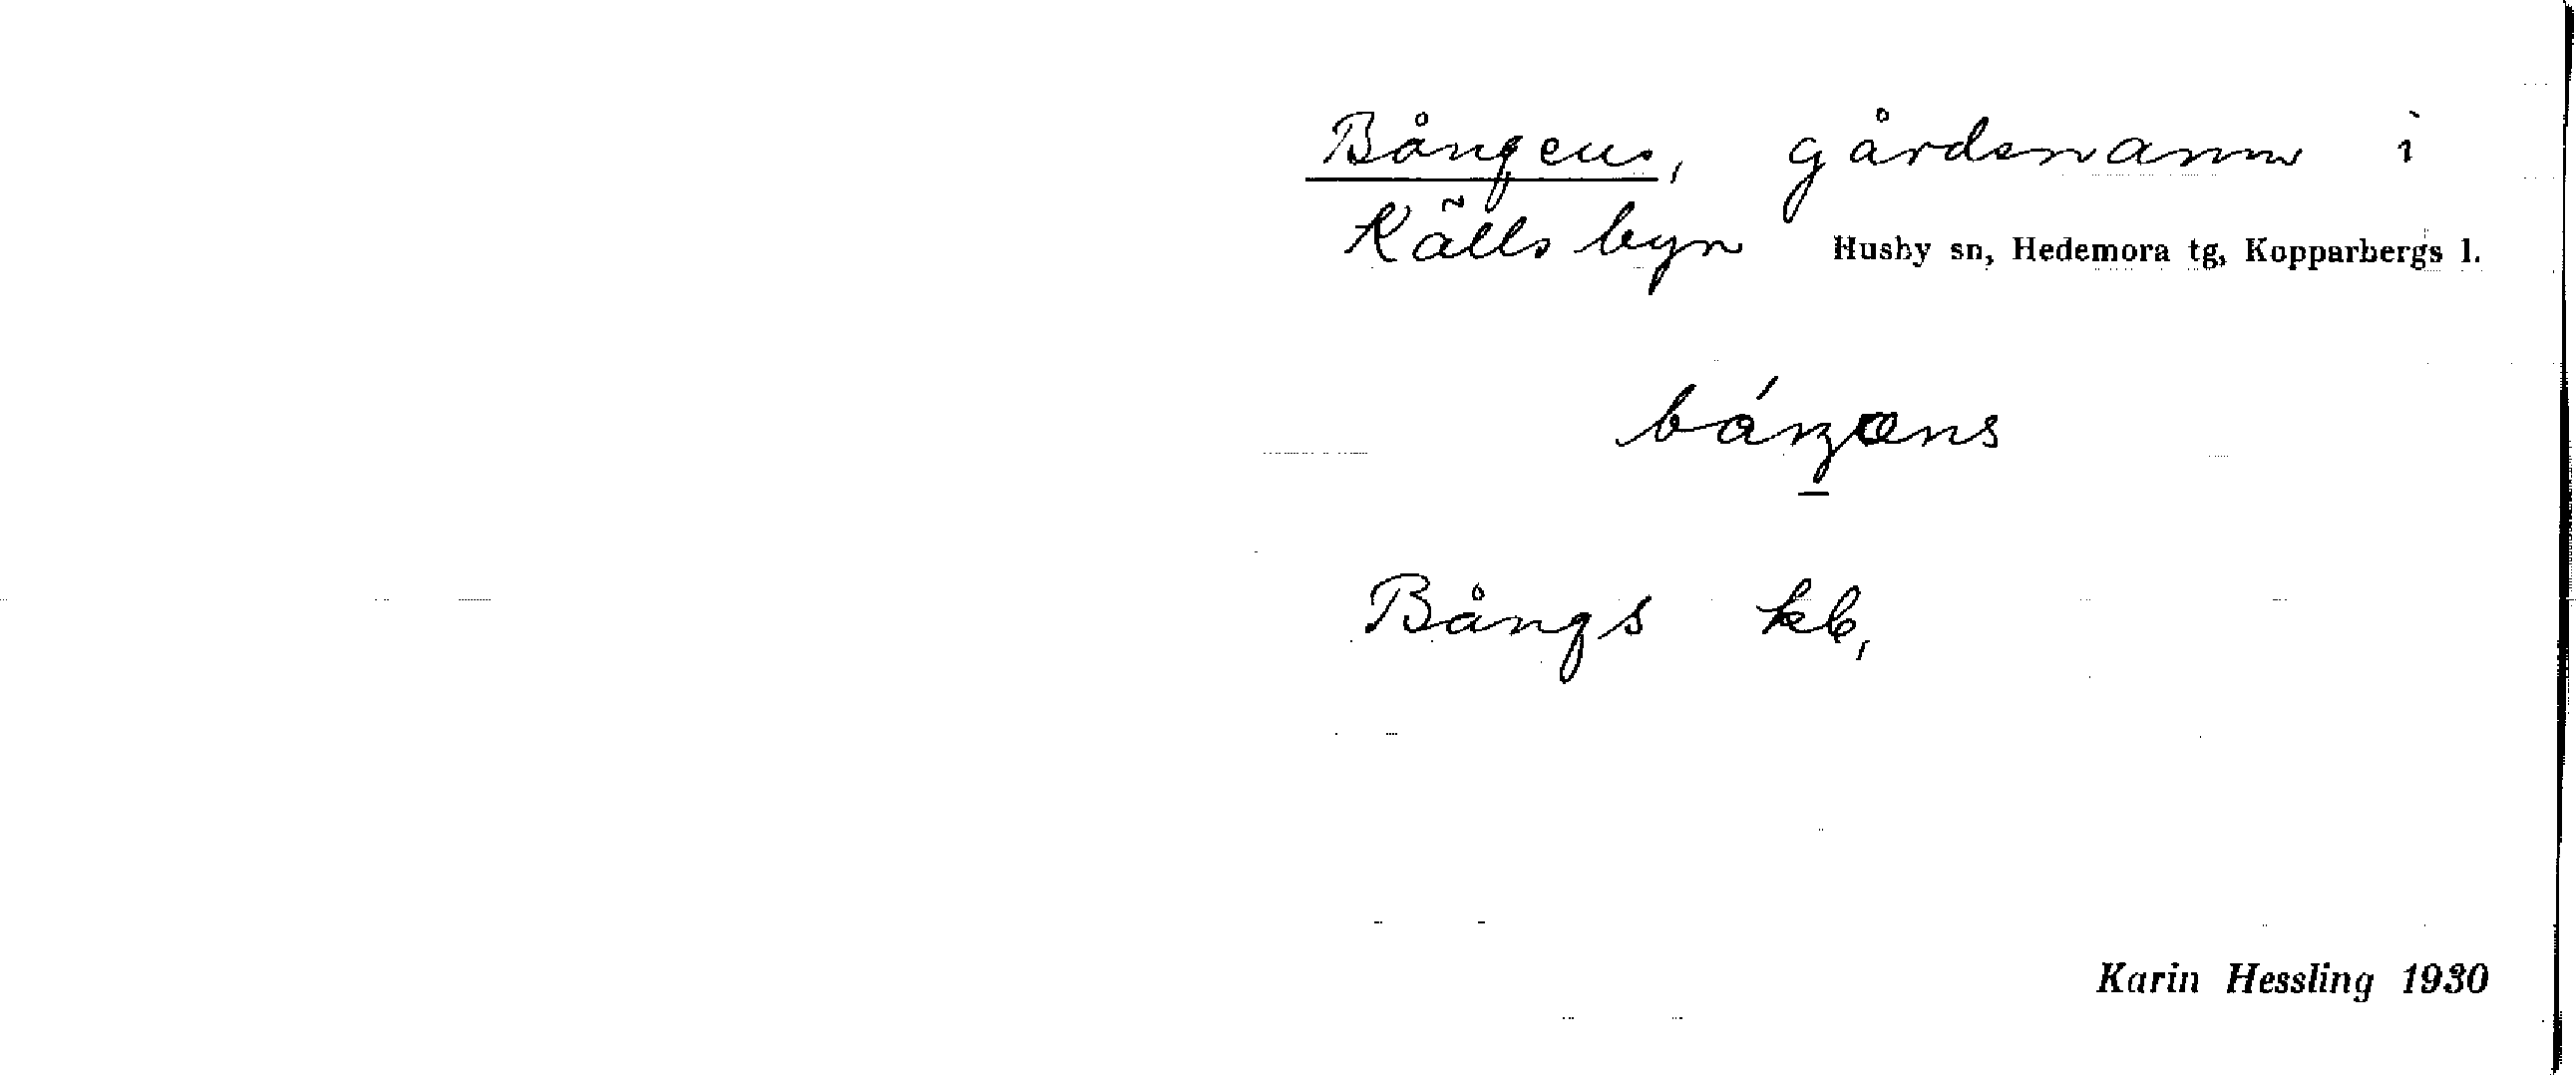 Bångens, gårdsnamn i
Källsbyn Husby sn, Hedemora tg, Kopparbergs l.
Bångs kb,
Karin Hessling 1930